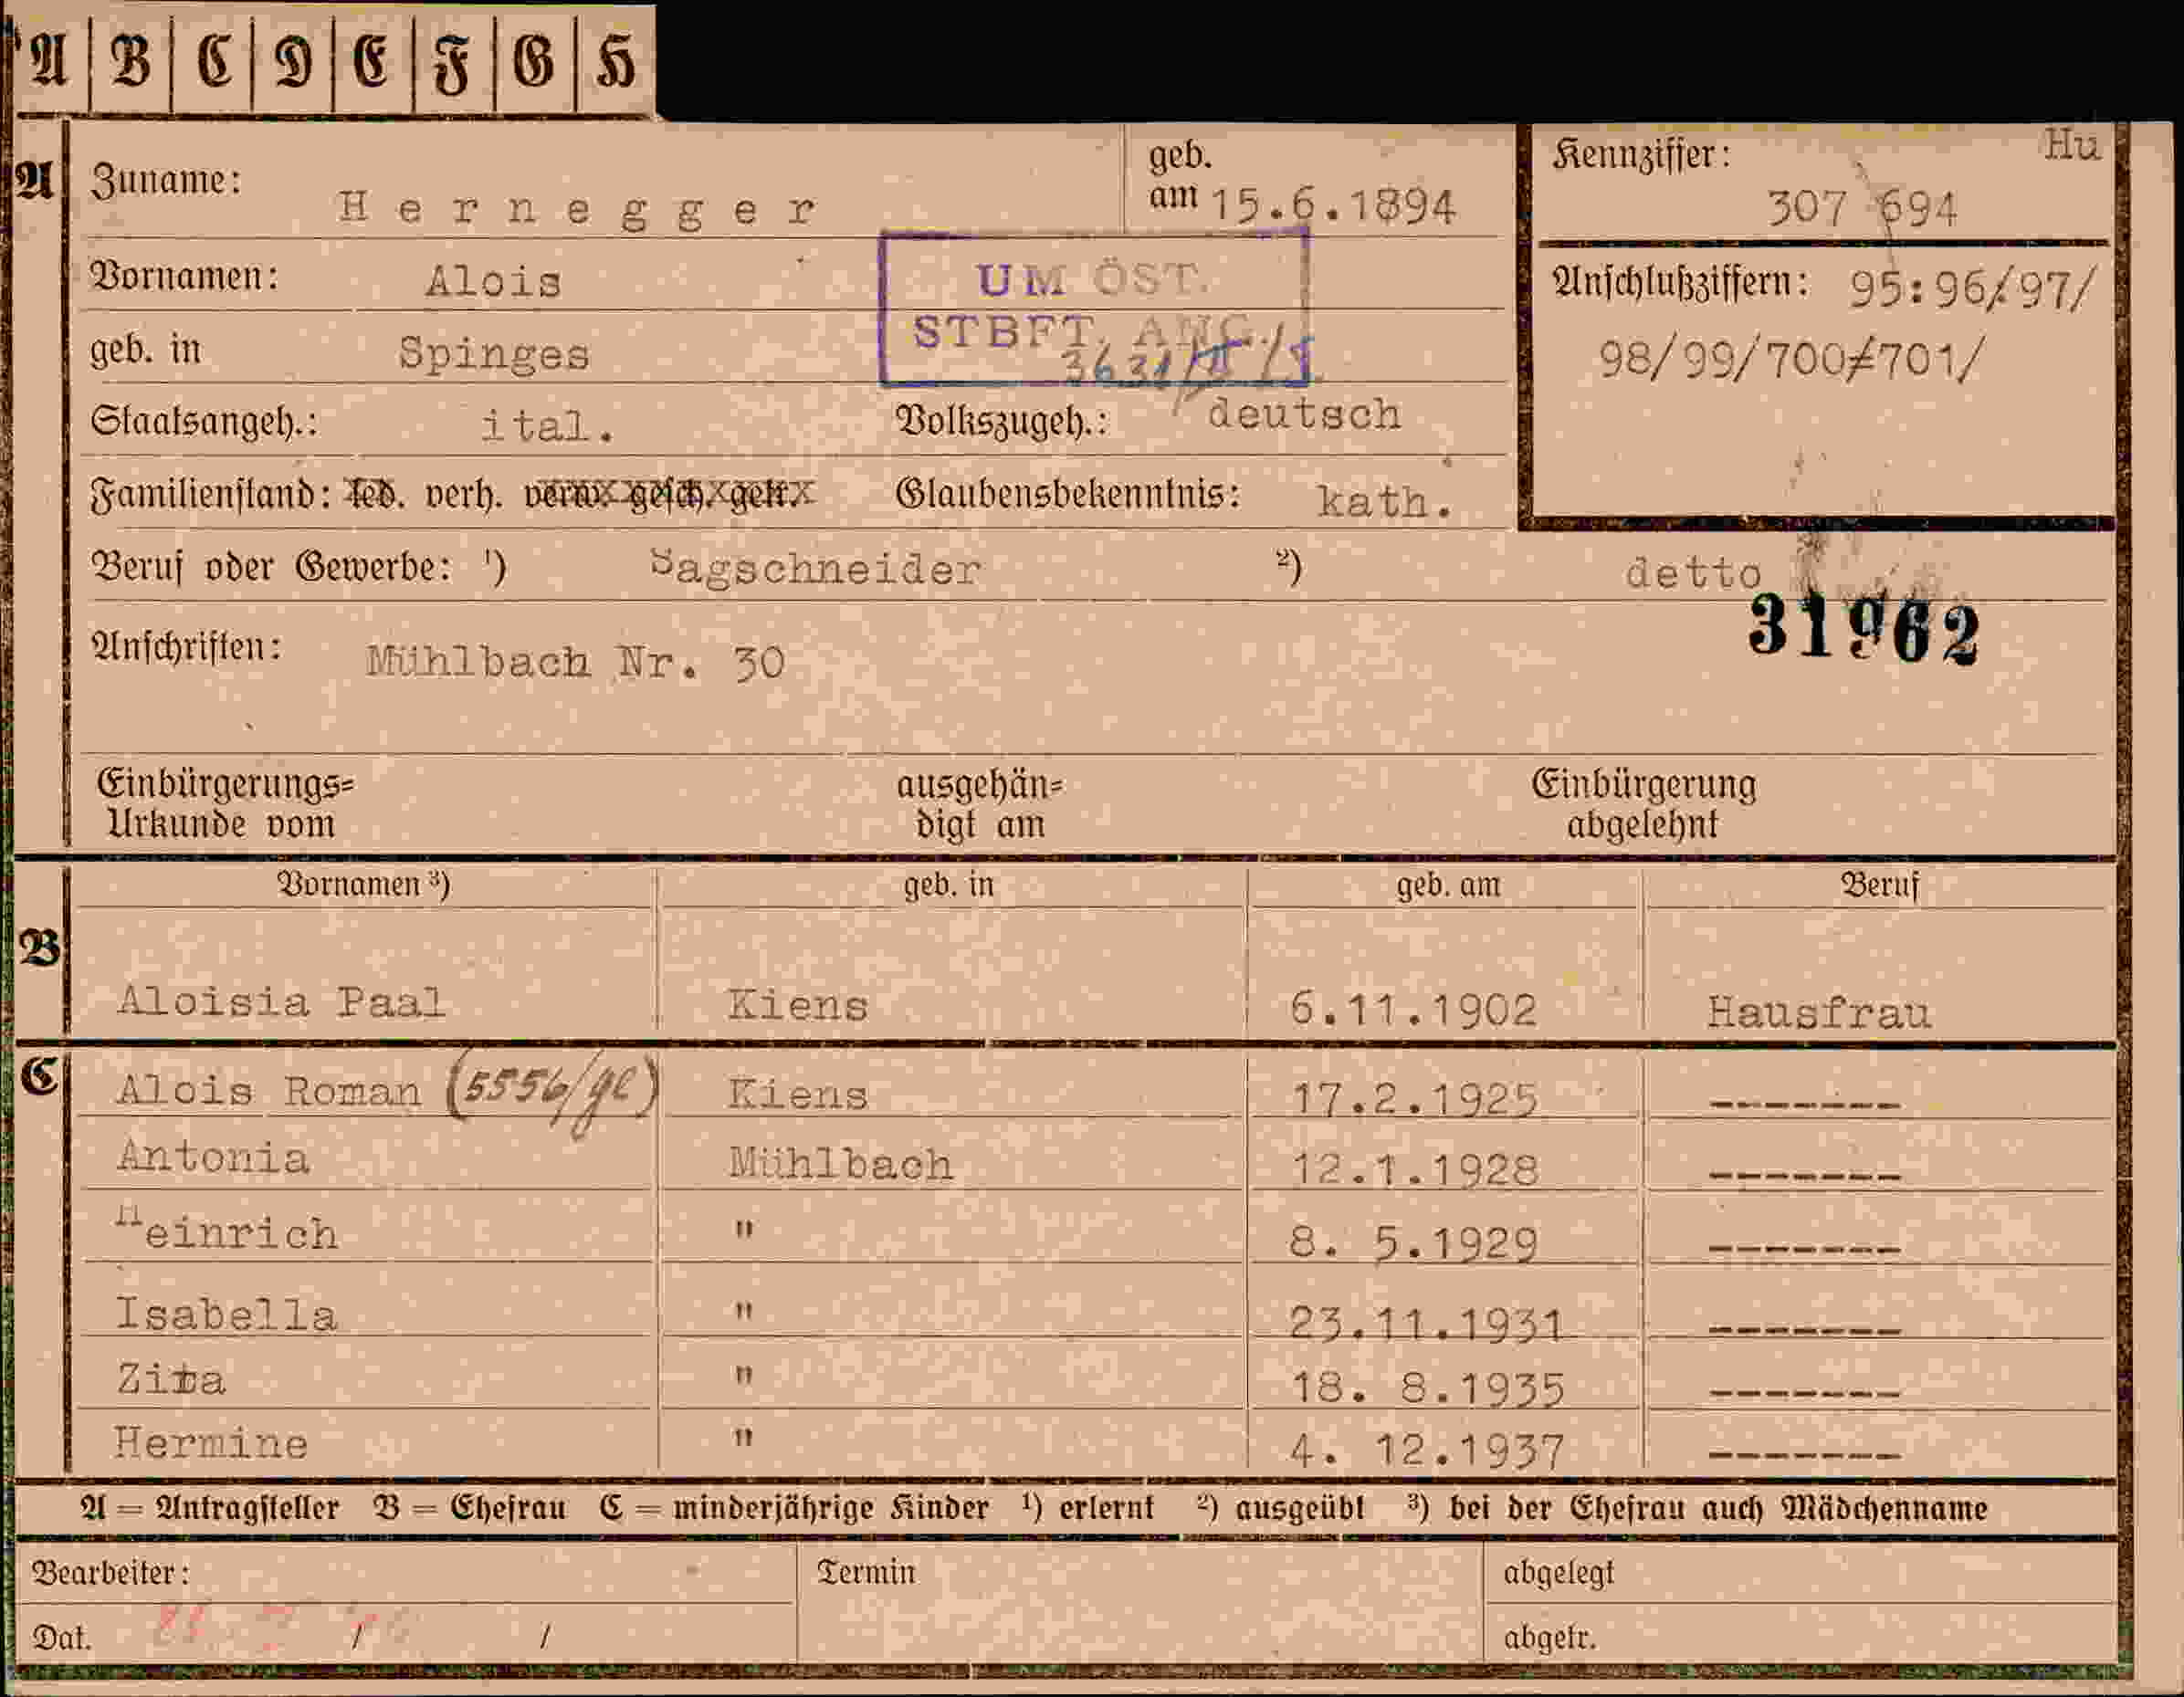 A B C D E F G H
A Zuname: Hernegger geb. am 15.6.1894
Kennziffer: Hu
307 694
Vornamen: Alois
UM ÖST.
STBFT. ANG.
Anschlußziffern: 95:96/97/
98/99/700/701/
geb. in Spinges
Staatsangeh.: ital. Volkszugeh.: deutsch
Familienstand: led. verh. verw. gesch. getr. Glaubensbekenntnis: kath.
Beruf oder Gewerbe: ¹) Sagschneider ²) detto
31962
Anschriften: Mühlbach Nr. 30
Einbürgerungs= ausgehän= Einbürgerung
Urkunde vom digt am abgelehnt
Vornamen ³) geb. in geb. am Beruf
B
Aloisia Paal Kiens 6.11.1902 Hausfrau
C Alois Roman (5556/ge) Kiens 17.2.1925 -------
Antonia Mühlbach 12.1.1928 -------
Heinrich " 8. 5.1929 -------
Isabella " 23.11.1931 -------
Zita " 18. 8.1935 -------
Hermine " 4. 12.1937 -------
A = Antragsteller B = Ehefrau C = minderjährige Kinder ¹) erlernt ²) ausgeübt ³) bei der Ehefrau auch Mädchenname
Bearbeiter: Termin abgelegt
Dat. / / abgetr.